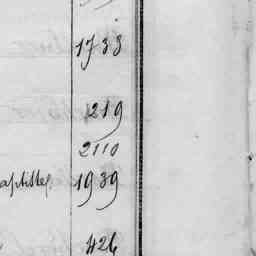 1738
219
2110
aptistes 1939
426